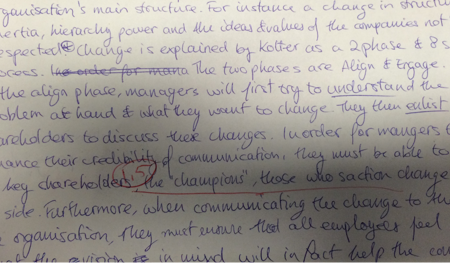 rganisation's main structure. For instance a change in structu
nertia, hierarchy power and the ideas & values of the companies not
espected. Change is explained by Kotter as a 2 phase & 8 s
rocess. In order for mana The two phases are Align & Engage.
the align phase, managers will first try to understand the
oblem at hand & what they want to change. They then enlist
areholders to discuss these changes. In order for mangers t
hance their credibility of communication, they must be able to
key shareholders, the "champions", those who saction change
side. Furthermore, when communicating the change to th
organisation, they must ensure that all employees feel
in mind will in fact help the com